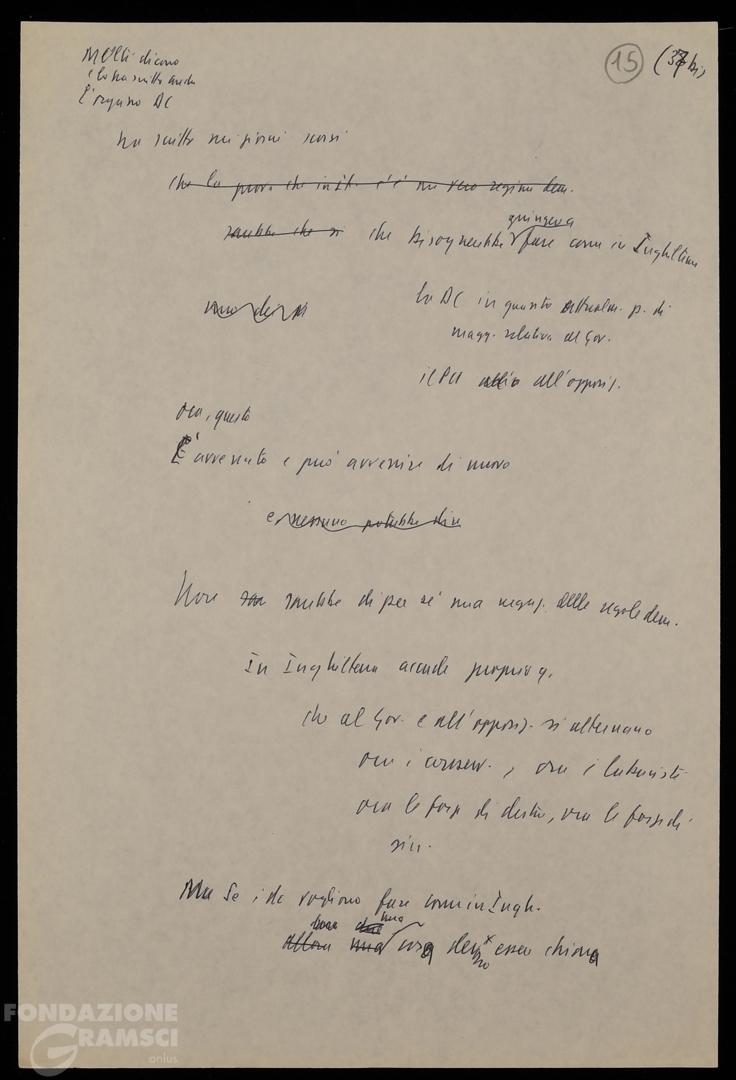 15 (37 bis)
Molti dicono
e lo ha scritto anche
l'organo DC
ha scritto nei giorni scorsi
che la prova che in It. c'è un vero regime dem.
sarebbe che si che bisognerebbe quindi fare come in Inghilterra
la DC in quanto p. di
magg. relativa al Gov.
il PCI all'oppos.
ora, questo
È avvenuto e può avvenire di nuovo
e nessuno potrebbe dire
Non sarebbe di per sé una negaz. delle regole dem.
In Inghilterra accade proprio q.
che al Gov. e all'oppos. si alternano
ora i conserv., ora i laburisti
ora le forze di destra, ora le forze di
sin.
Ma se i dc vogliono fare come in Ingh.
allora una cosa deve esser chiara
FONDAZIONE
GRAMSCI
onlus